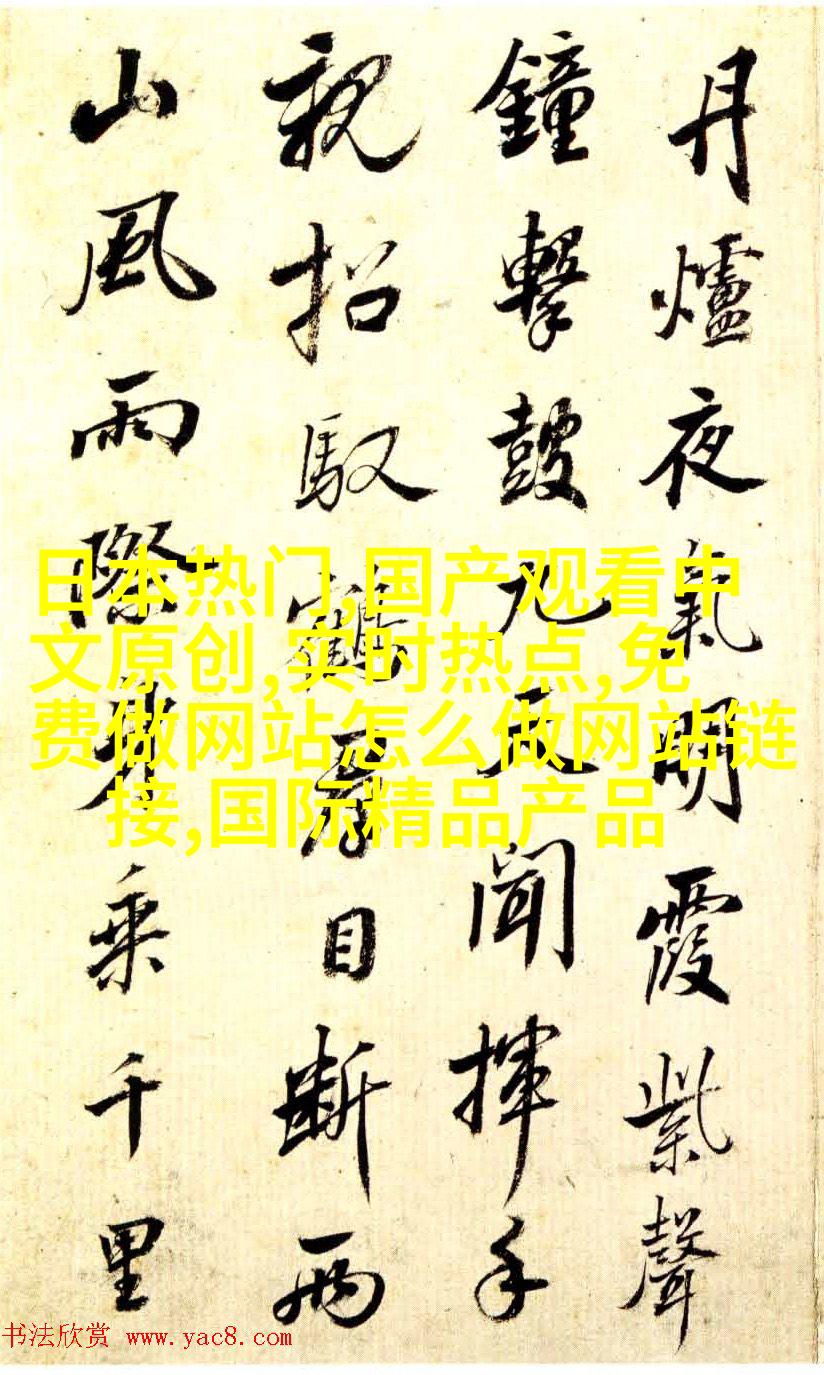 丹爐夜氣明霞紫聲
鐘擊鼓九天聞揮手
親招馭鶴目斷兩
山風雨際乘千里
日本热门,国产观看中
文原创,实时热点,免
费做网站怎么做网站链
接,国际精品产品
书法欣赏 www.yac8.com